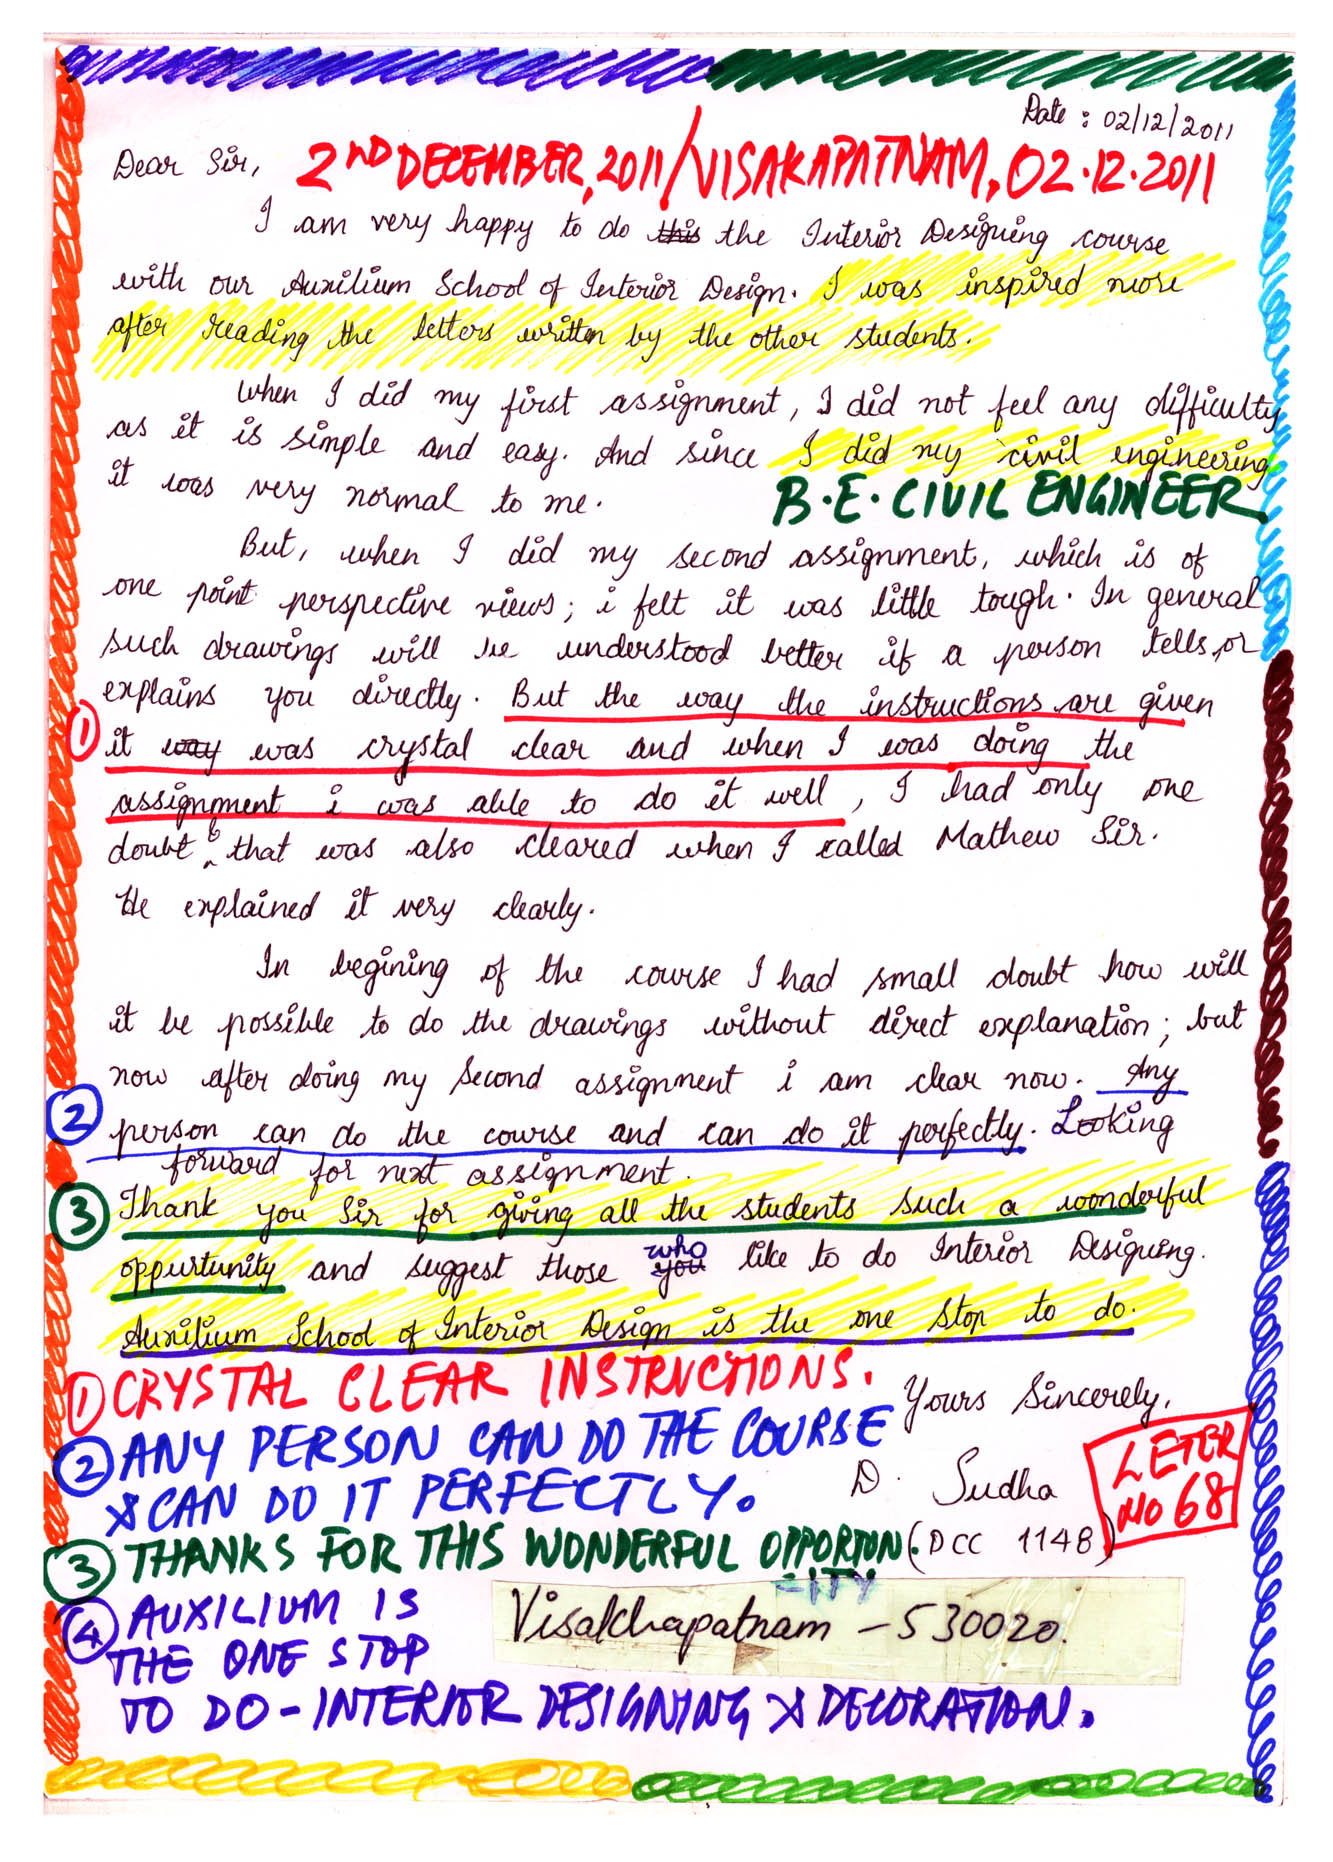 Date : 02/12/2011
Dear Sir,
2ND DECEMBER, 2011/VISAKAPATNAM, 02.12.2011
I am very happy to do this the Interior Designing course
with our Auxilium School of Interior Design. I was inspired more
after reading the letters written by the other students.
When I did my first assignment, I did not feel any difficulty
as it is simple and easy. And since I did my civil engineering
it was very normal to me.
B.E. CIVIL ENGINEER
But, when I did my second assignment, which is of
one point perspective views; i felt it was little tough. In general
such drawings will be understood better if a person tells or
explains you directly. But the way the instructions are given
1 it way was crystal clear and when I was doing the
assignment i was able to do it well, I had only one
doubt & that was also cleared when I called Mathew Sir.
He explained it very clearly.
In begining of the course I had small doubt how will
it be possible to do the drawings without direct explanation; but
now after doing my second assignment i am clear now. Any
2 person can do the course and can do it perfectly. Looking
forward for next assignment.
3 Thank you Sir for giving all the students such a wonderful
oppurtunity and suggest those you who like to do Interior Designing.
Auxilium School of Interior Design is the one stop to do.
1 CRYSTAL CLEAR INSTRUCTIONS.
Yours Sincerely,
2 ANY PERSON CAN DO THE COURSE
& CAN DO IT PERFECTLY.
D. Sudha
LETER
NO 68
3 THANKS FOR THIS WONDERFUL OPPORTUN
-ITY
(DCC 1148)
4 AUXILIUM IS
THE ONE STOP
TO DO - INTERIOR DESIGNING & DECORATION.
Visakhapatnam - 530020.